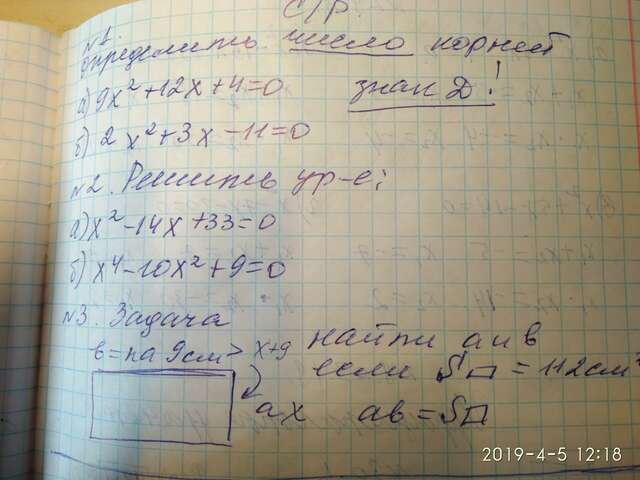 С/Р.
№1.
Определить число корней
а) 9x²+12x+4=0
знак D!
б) 2x²+3x-11=0
№2. Решить ур-е:
а) x²-14x+33=0
б) x⁴-10x²+9=0
№3. Задача
в=на 9см> x+9
найти а и в
если S▭=112см²
ах ав=S▭
2019-4-5 12:18